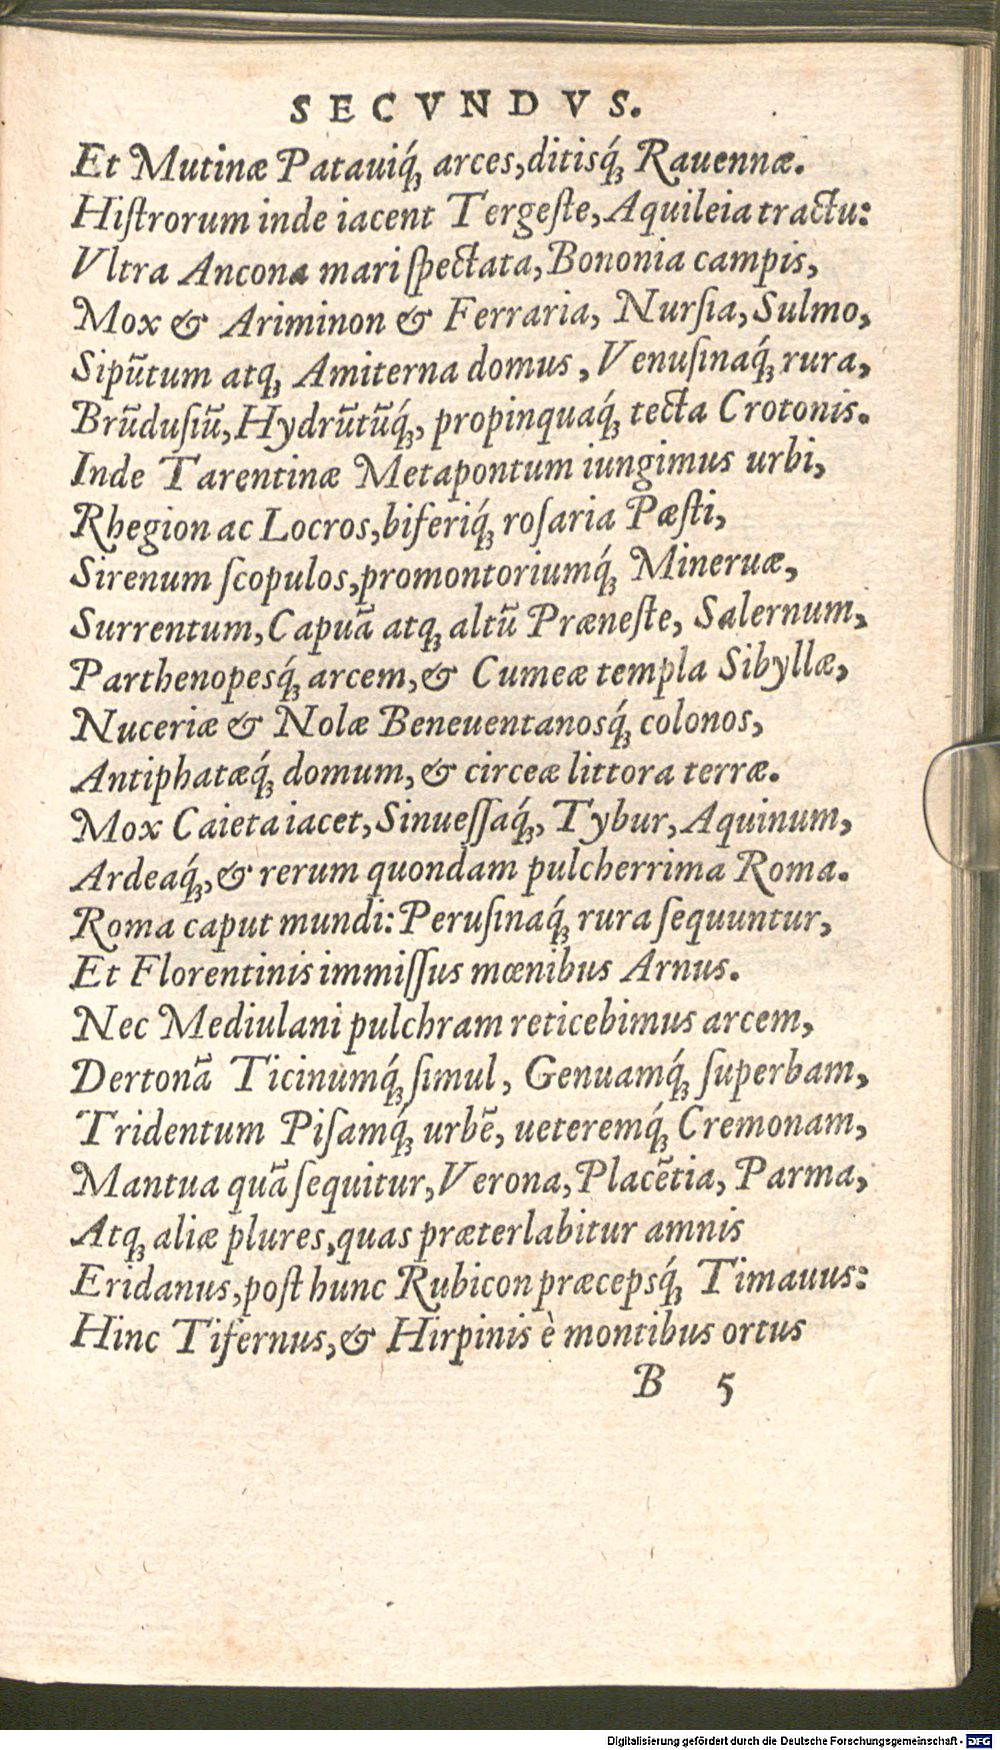 SECVNDVS.
Et Mutinæ Patauiq́ꝫ arces, ditisq́ꝫ Rauennæ.
Hiſtrorum inde iacent Tergeſte, Aquileia tractu:
Vltra Ancona mari ſpectata, Bononia campis,
Mox & Ariminon & Ferraria, Nurſia, Sulmo,
Sipūtum atqꝫ Amiterna domus, Venuſinaq́ꝫ rura,
Brūduſiū, Hydrūtūq́ꝫ, propinquaq́ꝫ tecta Crotonis.
Inde Tarentinæ Metapontum iungimus urbi,
Rhegion ac Locros, biferiq́ꝫ roſaria Pæſti,
Sirenum ſcopulos, promontoriumq́ꝫ Mineruæ,
Surrentum, Capuā atqꝫ altū Præneſte, Salernum,
Parthenopesq́ꝫ arcem, & Cumeæ templa Sibyllæ,
Nuceriæ & Nolæ Beneuentanosq́ꝫ colonos,
Antiphatæq́ꝫ domum, & circeæ littora terræ.
Mox Caieta iacet, Sinueſſaq́ꝫ, Tybur, Aquinum,
Ardeaq́ꝫ, & rerum quondam pulcherrima Roma.
Roma caput mundi: Peruſinaq́ꝫ rura ſequuntur,
Et Florentinis immiſſus mœnibus Arnus.
Nec Mediulani pulchram reticebimus arcem,
Dertonā Ticinumq́ꝫ ſimul, Genuamq́ꝫ ſuperbam,
Tridentum Piſamq́ꝫ urbē, ueteremq́ꝫ Cremonam,
Mantua quā ſequitur, Verona, Placētia, Parma,
Atqꝫ aliæ plures, quas præterlabitur amnis
Eridanus, poſt hunc Rubicon præcepsq́ꝫ Timauus:
Hinc Tifernus, & Hirpinis è montibus ortus
B 5
Digitalisierung gefördert durch die Deutsche Forschungsgemeinschaft - DFG